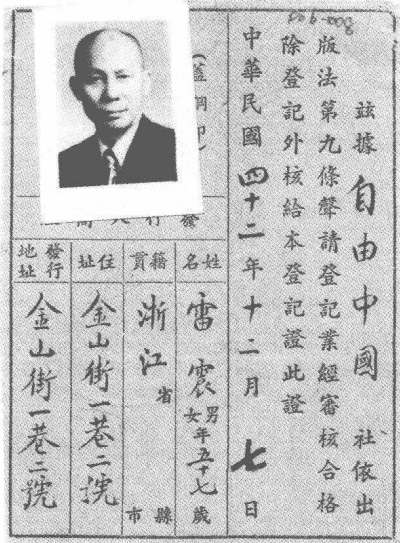 茲據自由中國社依出
版法第九條聲請登記業經審核合格
除登記外核給本登記證此證
中華民國四十二年十二月七日
姓名
雷震
男女年五十七歲
籍貫
浙江省
縣市
住址
金山街一巷二號
發行地址
金山街一巷二號